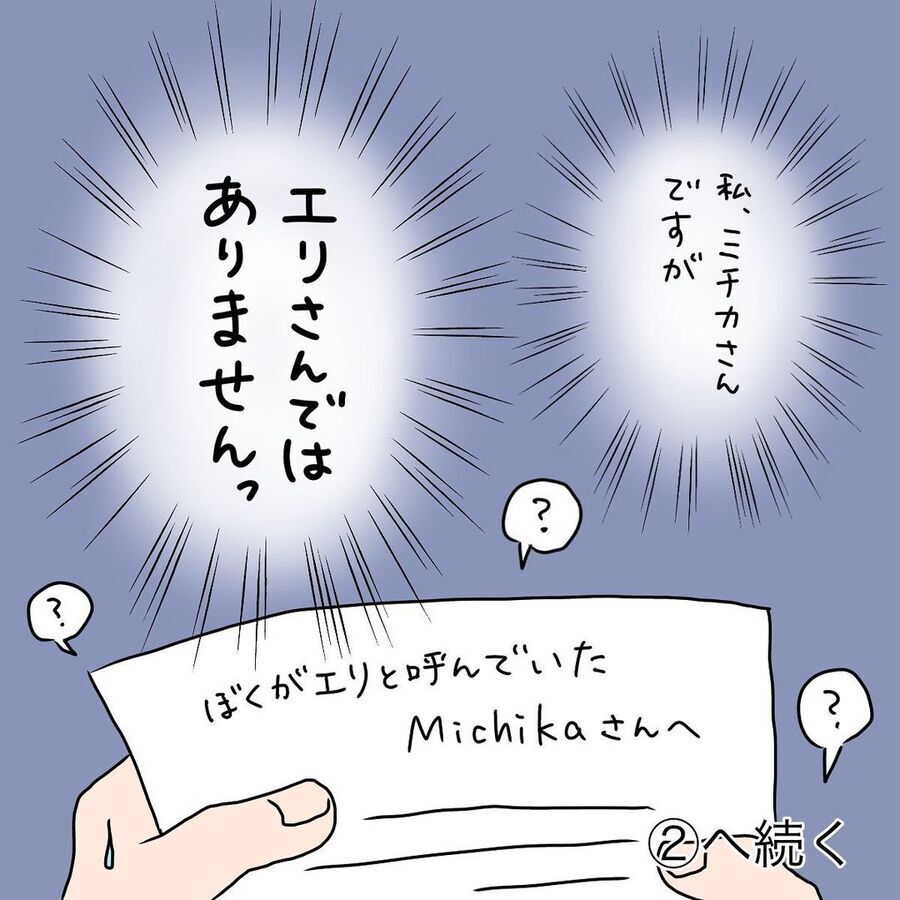 私、ミチカさん
ですが
エリさんでは
ありませんっ
?
?
?
ぼくがエリと呼んでいた
Michikaさんへ
②へ続く